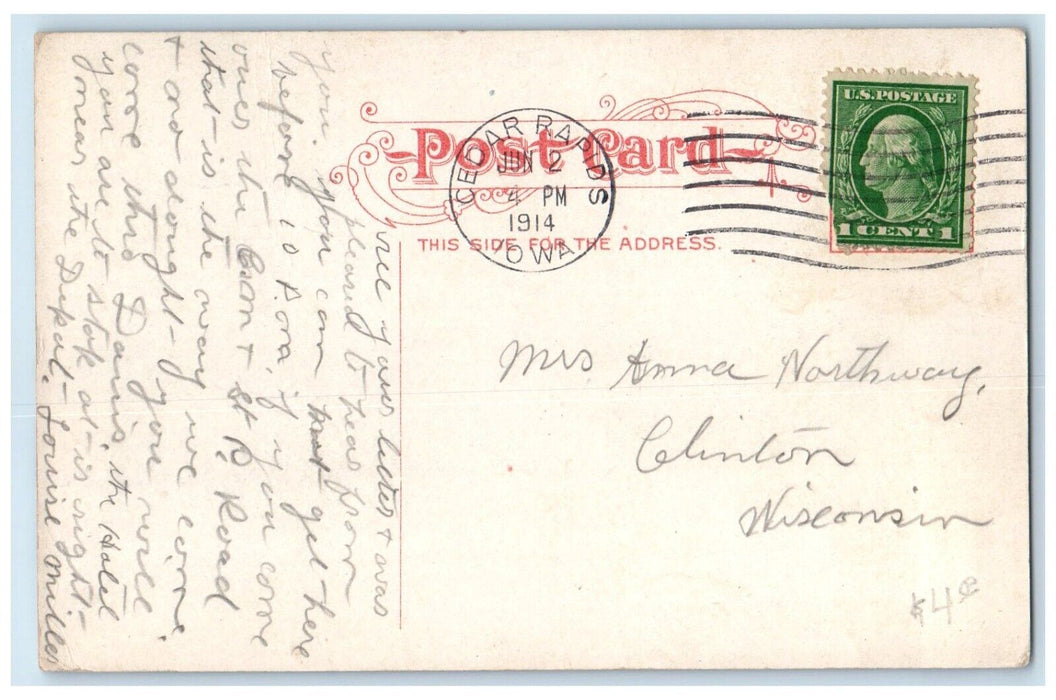 Post Card
CEDAR RAPIDS
JUN 2
4 PM
1914
IOWA
U.S. POSTAGE
1 CENT 1
THIS SIDE FOR THE ADDRESS.
rec your letter + was
pleased to hear from
you. you can not get here
before 10 if you come
over the + St P. Road
that is the way we come
+ no dought you will
come thro the Hotel
you are to stop at is right
near the Depot. Louise Miller
Mrs Anna Northway,
Clinton
Wisconsin
$4